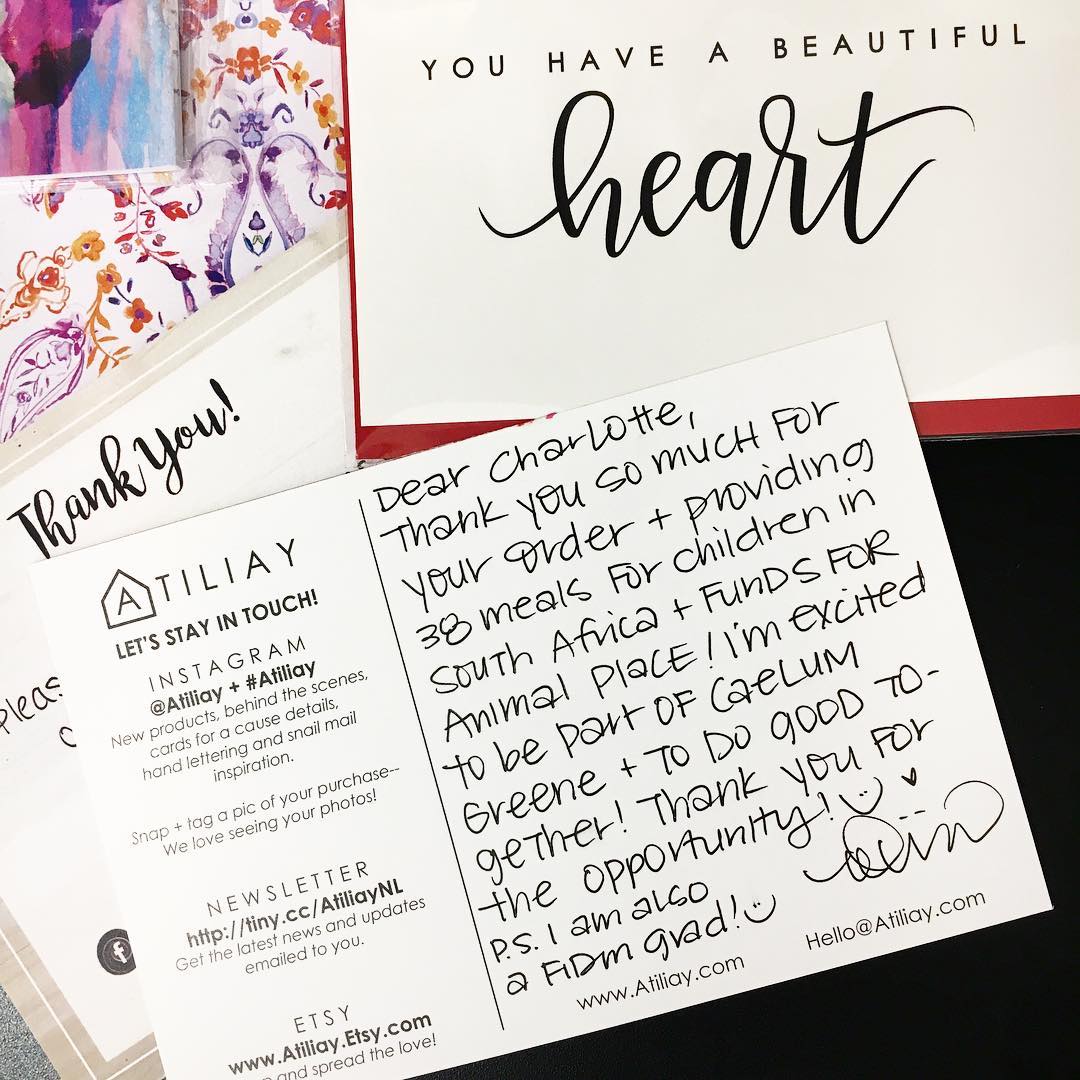 YOU HAVE A BEAUTIFUL
heart
Thank You!
Pleas
ATILIAY
LET'S STAY IN TOUCH!
INSTAGRAM
@Atiliay + #Atiliay
New products, behind the scenes,
cards for a cause details,
hand lettering and snail mail
inspiration.
Snap + tag a pic of your purchase--
We love seeing your photos!
NEWSLETTER
http://tiny.cc/AtiliayNL
Get the latest news and updates
emailed to you.
ETSY
www.Atiliay.Etsy.com
and spread the love!
Dear Charlotte,
Thank you so much for
your order + providing
38 meals for children in
South Africa + funds for
Animal Place! I'm excited
to be part of Caelum
Greene + to do good to-
gether! Thank you for
the opportunity!
P.S. I am also
a FIDM grad!
www.Atiliay.com
Hello@Atiliay.com
f